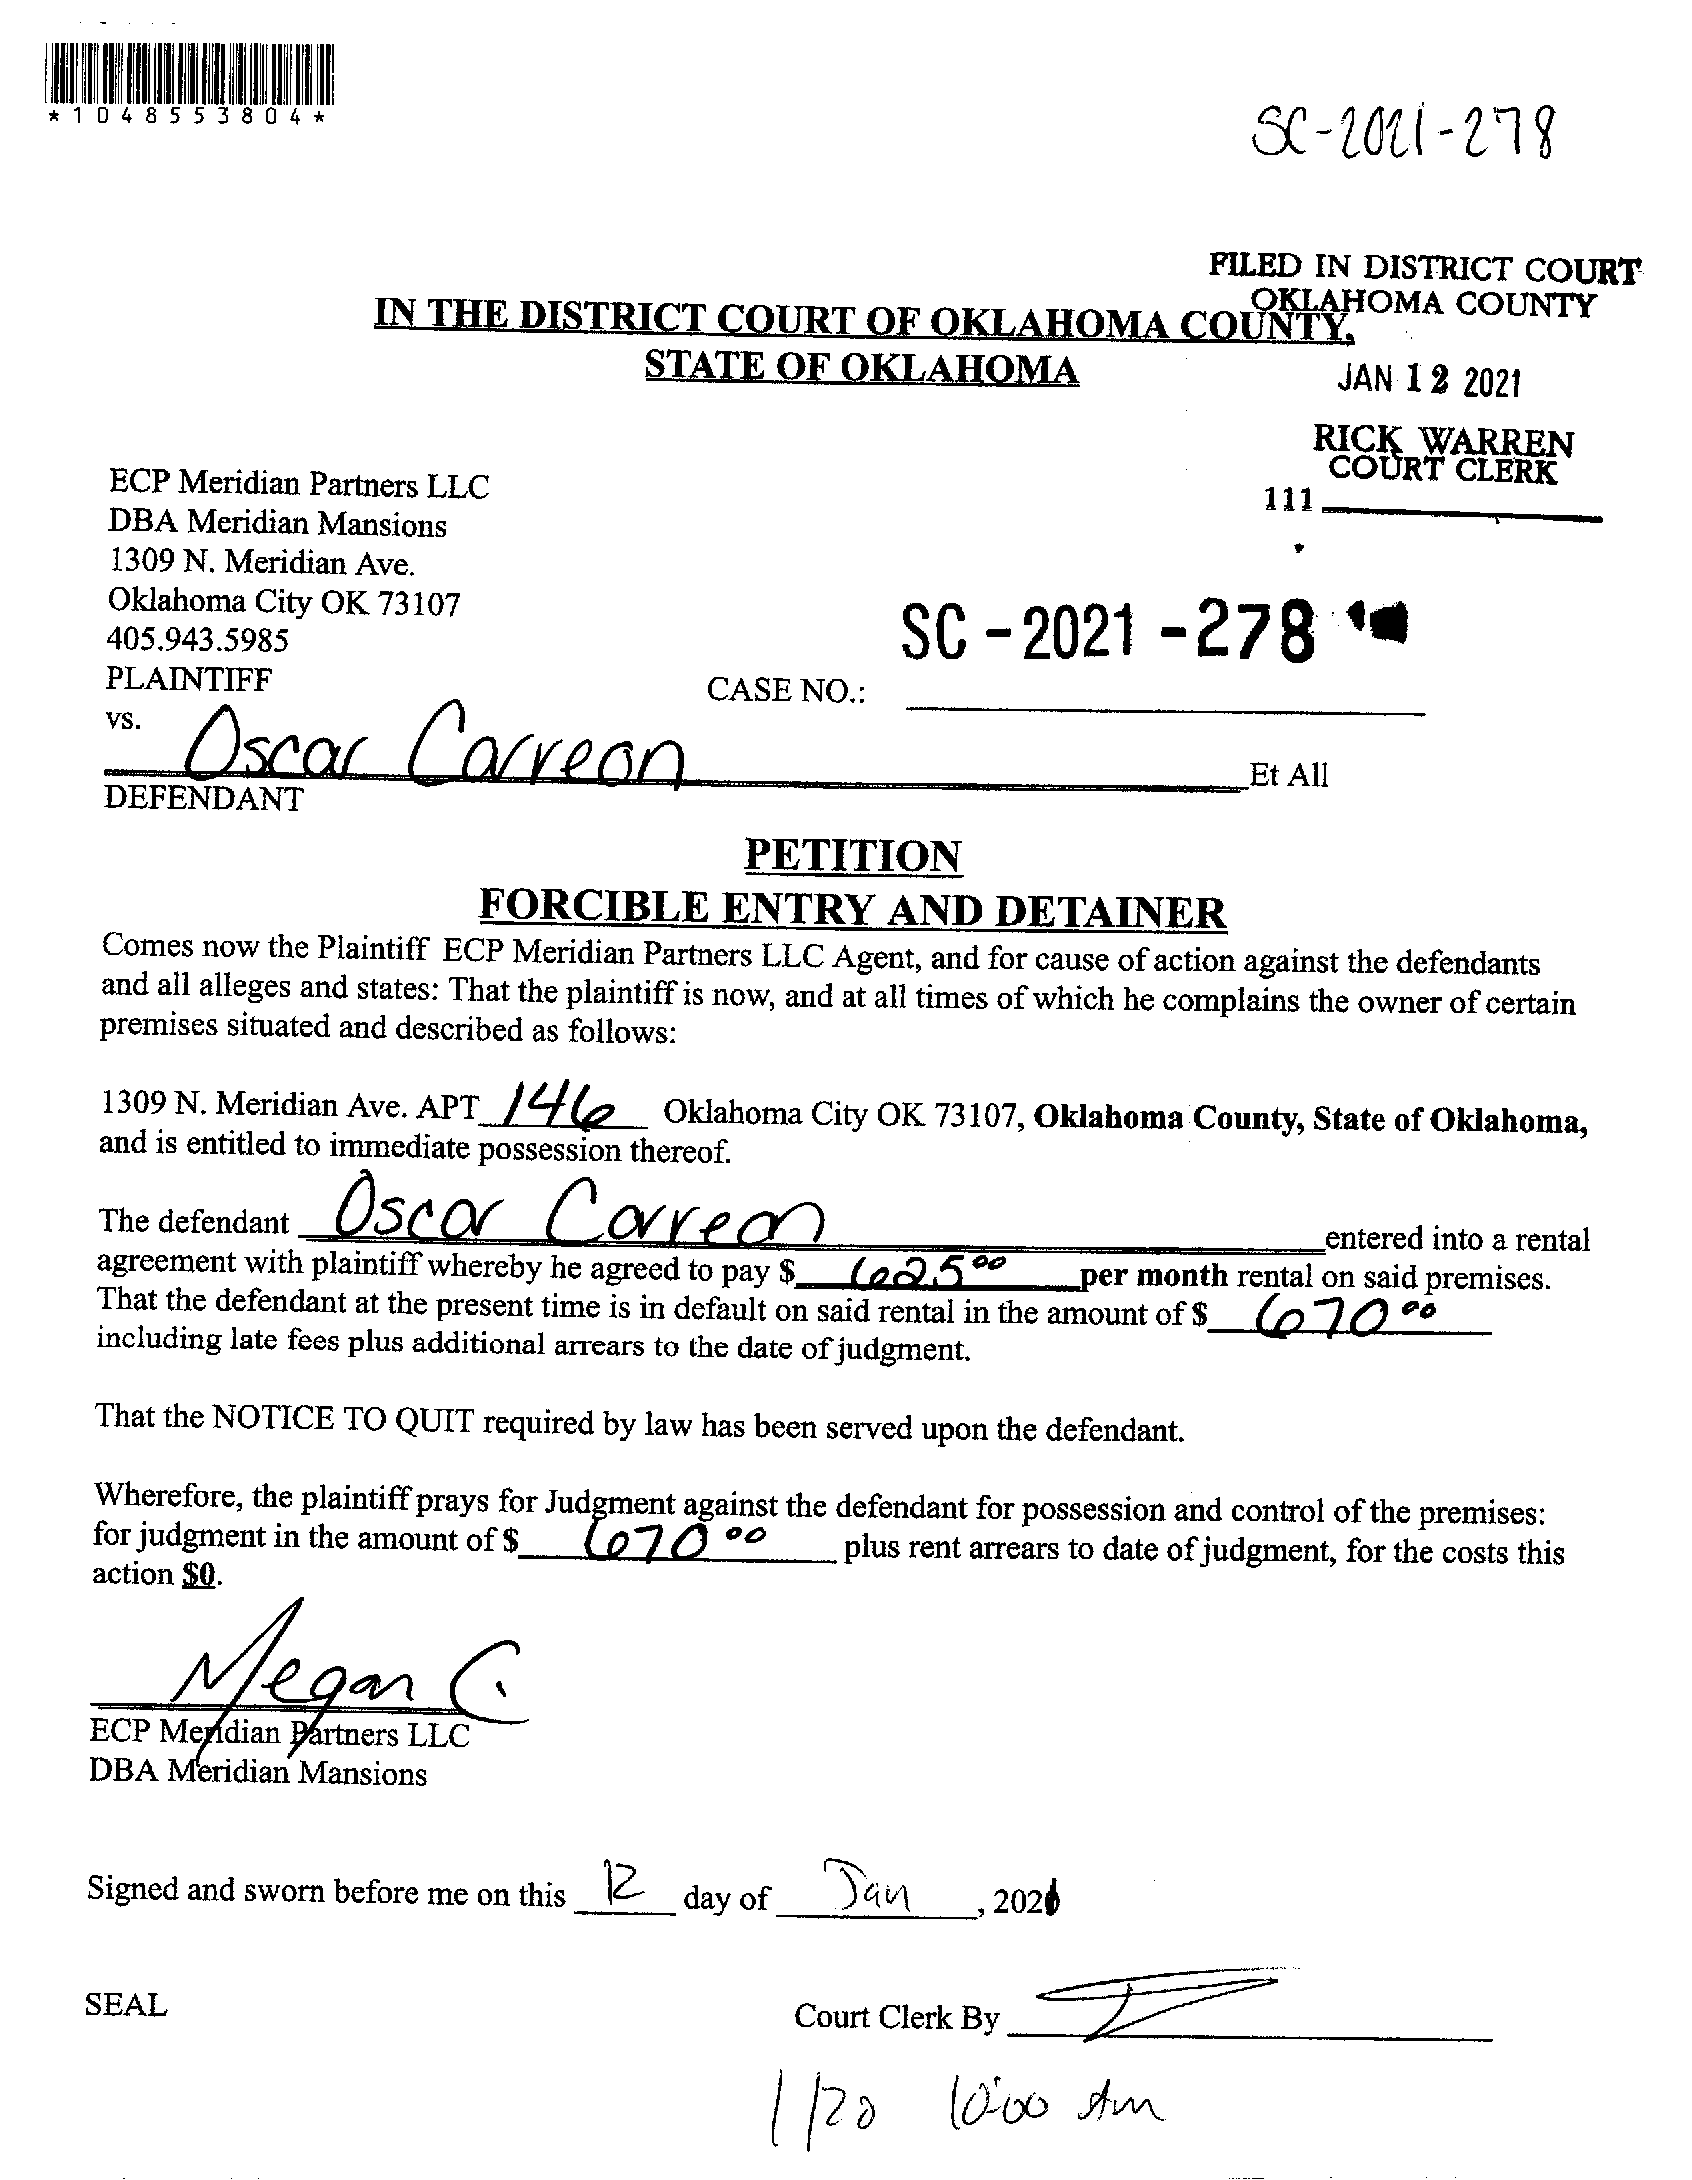 *1048553804*
SC-2021-278
FILED IN DISTRICT COURT
OKLAHOMA COUNTY
IN THE DISTRICT COURT OF OKLAHOMA COUNTY,
STATE OF OKLAHOMA
JAN 12 2021
RICK WARREN
COURT CLERK
111
ECP Meridian Partners LLC
DBA Meridian Mansions
1309 N. Meridian Ave.
Oklahoma City OK 73107
405.943.5985
PLAINTIFF
SC - 2021 - 278
CASE NO.:
vs.
Oscar Carreon Et All
DEFENDANT
PETITION
FORCIBLE ENTRY AND DETAINER
Comes now the Plaintiff ECP Meridian Partners LLC Agent, and for cause of action against the defendants
and all alleges and states: That the plaintiff is now, and at all times of which he complains the owner of certain
premises situated and described as follows:
1309 N. Meridian Ave. APT 146 Oklahoma City OK 73107, Oklahoma County, State of Oklahoma,
and is entitled to immediate possession thereof.
The defendant Oscar Carreon entered into a rental
agreement with plaintiff whereby he agreed to pay $ 625.00 per month rental on said premises.
That the defendant at the present time is in default on said rental in the amount of $ 670.00
including late fees plus additional arrears to the date of judgment.
That the NOTICE TO QUIT required by law has been served upon the defendant.
Wherefore, the plaintiff prays for Judgment against the defendant for possession and control of the premises:
for judgment in the amount of $ 670.00 plus rent arrears to date of judgment, for the costs this
action $0.
Megan C.
ECP Meridian Partners LLC
DBA Meridian Mansions
Signed and sworn before me on this 12 day of Jan, 2021
SEAL
Court Clerk By
1/20 10:00 Am